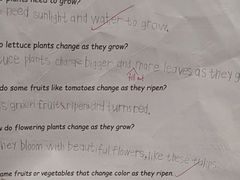 need sunlight and water to grow.
lettuce plants change as they grow?
plants change bigger and more leaves as they
fall out
do some fruits like tomatoes change as they ripen?
green fruits ripen and turns red.
do flowering plants change as they grow?
They bloom with beautiful flowers, like these tulips.
ame fruits or vegetables that change color as they ripen.